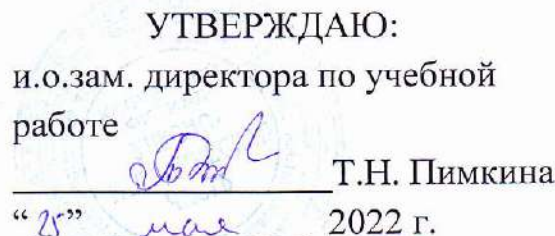 УТВЕРЖДАЮ:
и.о.зам. директора по учебной
работе
Т.Н. Пимкина
“25” мая 2022 г.